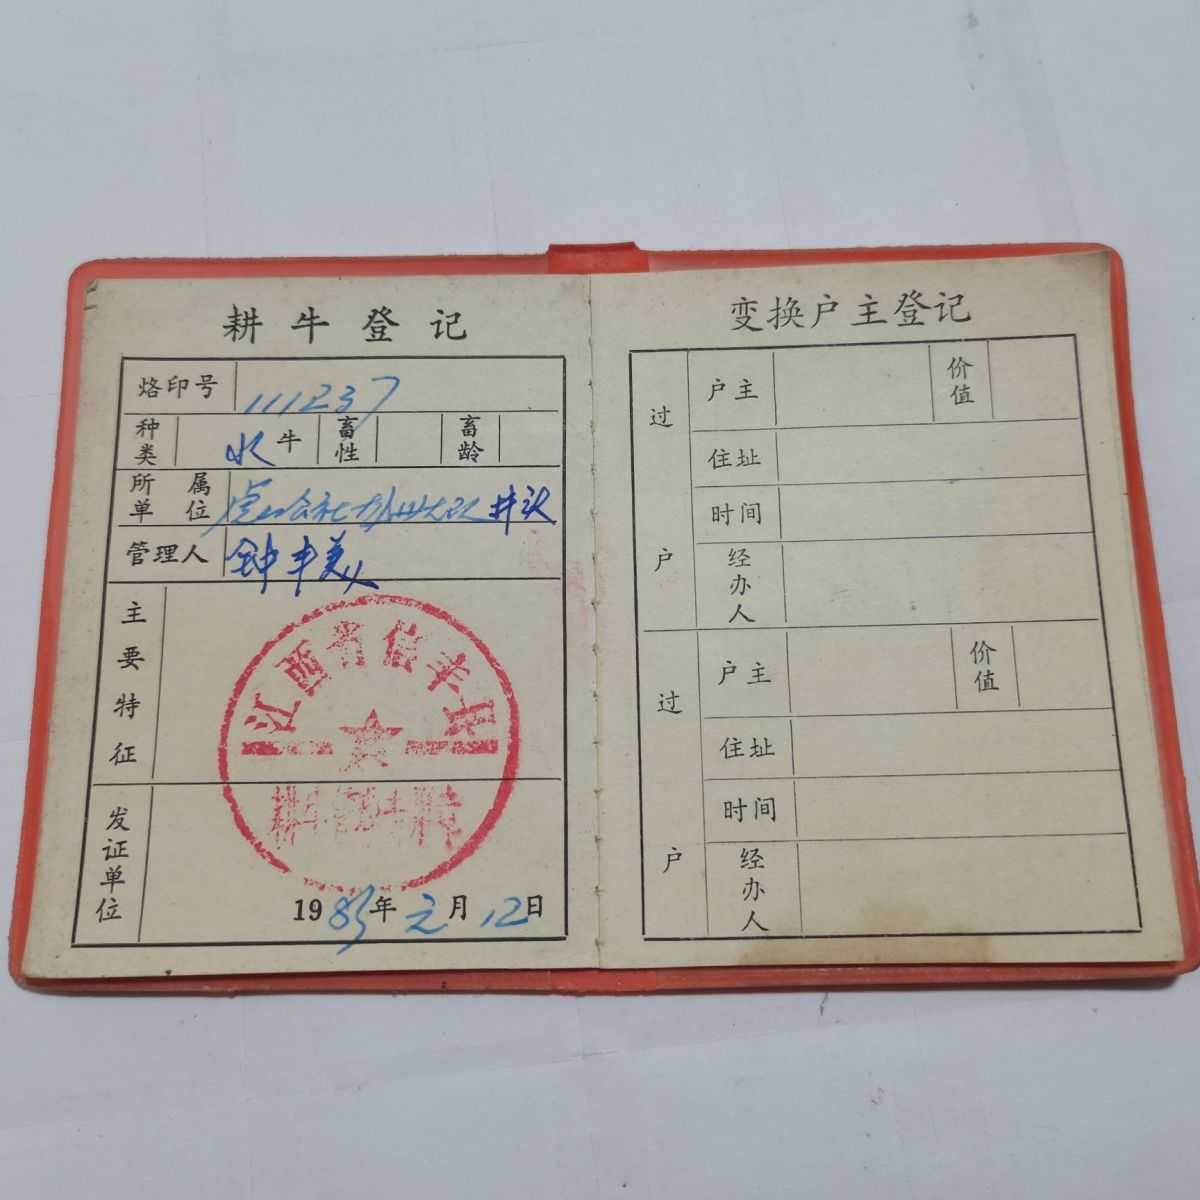 耕牛登记
烙印号 111237
种类 水牛 畜性 畜龄
所属单位 虎山公社 大队 井头
管理人 钟丰美
主要特征
江西省信丰县
耕牛管理专用章
发证单位
1983年元月12日
变换户主登记
过户 户主 价值
住址
时间
经办人
过户 户主 价值
住址
时间
经办人